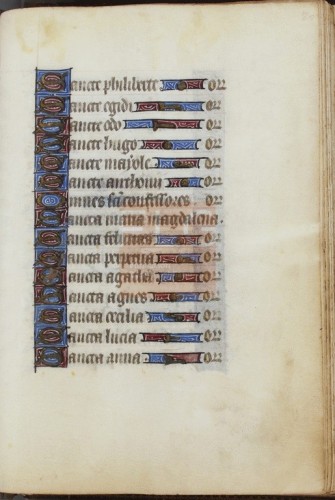 Sancte philiberte or
Sancte egidi or
Sancte odo or
Sancte hugo or
Sancte mayole or
Sancte anthoni or
Omnes sci confessores or
Sancta maria magdalena
Sancta felicitas or
Sancta perpetua or
Sancta agatha or
Sancta agnes or
Sancta cecilia or
Sancta lucia or
Sancta anna or